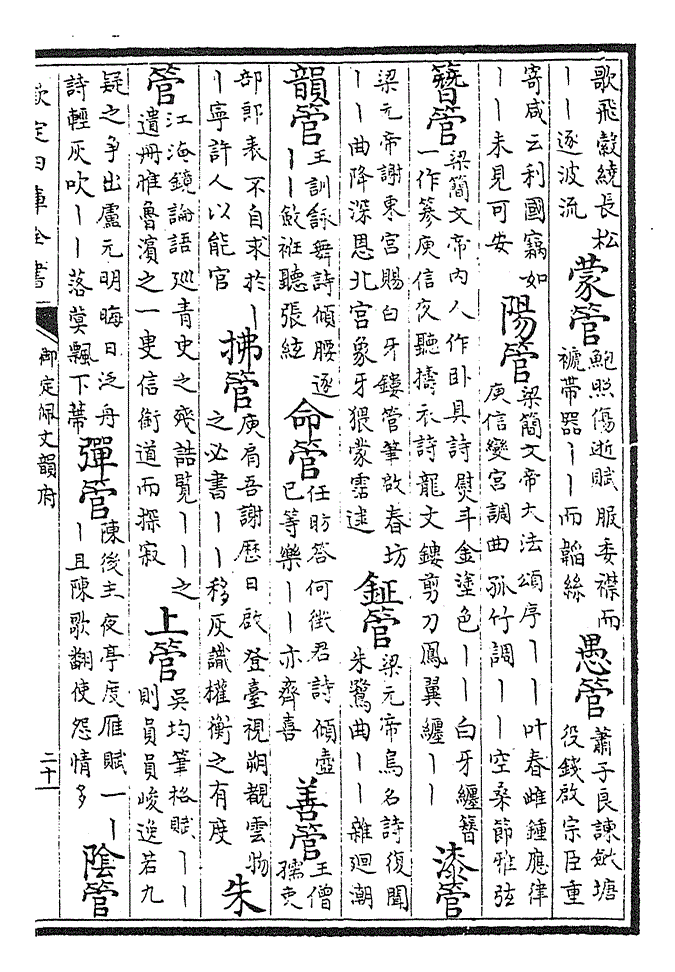 歌飛縠繞長松
丨丨逐波流
蒙管
鮑照傷逝賦服委襟而
襪帶器丨丨而韜絲
愚管
蕭子良諫斂塘
役錢啟宗臣重
寄咸云利國竊如
丨丨未見可安
陽管
梁簡文帝大法頌序丨丨叶春雌鍾應律
庾信變宮調曲孤竹調丨丨空桑節雅弦
簪管
梁簡文帝内人作卧具詩熨斗金塗色丨丨白牙纏簪
一作篸庾信夜聽擣衣詩龍文鏤剪刀鳳翼纏丨丨
漆管
梁元帝謝東宮賜白牙鏤管筆啟春坊
丨丨曲降深恩北宮象牙猥蒙霑逮
鉦管
梁元帝鳥名詩復聞
朱鷺曲丨丨雜迴潮
韻管
王訓詠舞詩傾腰逐
丨丨斂袵聽張絃
命管
任昉答何徵君詩傾壺
已等樂丨丨亦齊喜
善管
王僧
孺吏
部郎表不自求於丨
丨寧許人以能官
拂管
庾肩吾謝歷日啟登臺視朔覩雲物
之必書丨丨移灰識權衡之有度
朱
管
江淹鏡論語廵青史之殘誥覽丨丨之
遺册惟魯濱之一叟信銜道而探寂
上管
吳均筆格賦丨丨
則員員峻逸若九
疑之爭出盧元明晦日泛舟
詩輕灰吹丨丨落蓂飄下蔕
彈管
陳後主夜亭度雁賦一丨
丨且陳歌翻使怨情多
陰管
欽定四庫全書
御定佩文韻府
二十一